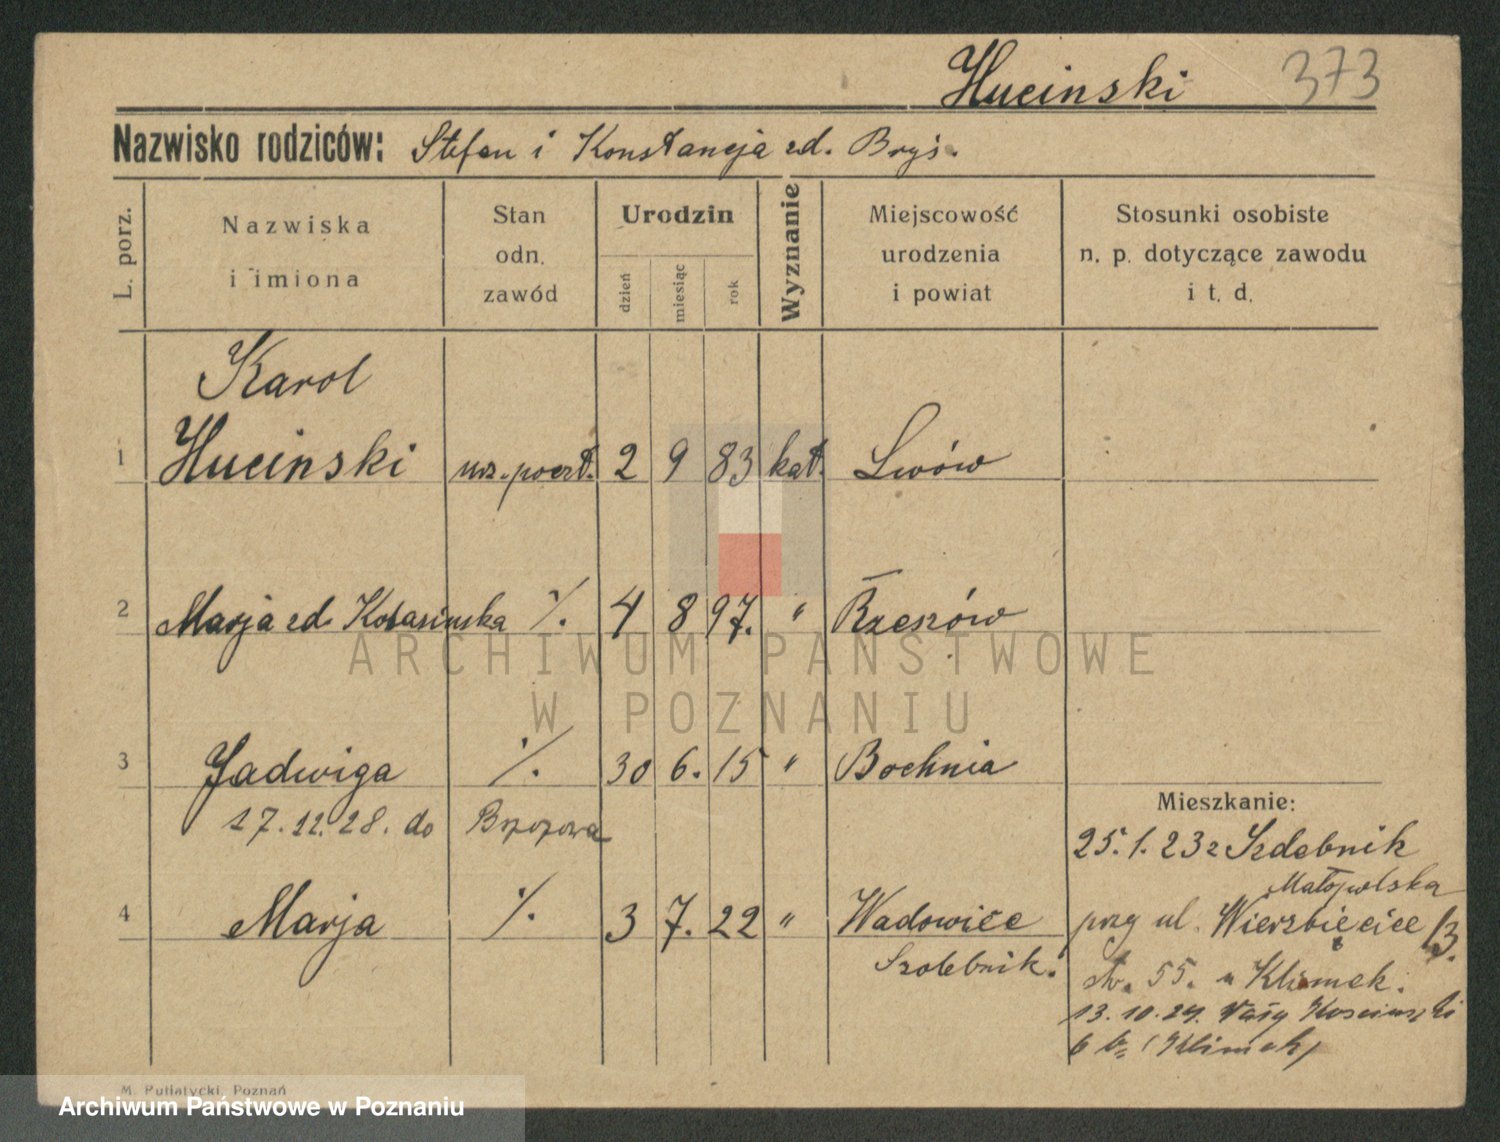 Hucinski 373
Nazwisko rodziców: Stefan i Konstancja zd. Bryś.
L. porz.
Nazwiska i imiona
Stan odn. zawód
Urodzin
dzień miesiąc rok
Wyznanie
Miejscowość urodzenia i powiat
Stosunki osobiste n. p. dotyczące zawodu i t. d.
Karol
1 Hucinski urz. poczt. 2 9 83 kat. Lwów
2 Marja zd. Kotasinska ·/. 4 8 97. " Rzeszów
ARCHIWUM PAŃSTWOWE
W POZNANIU
3 Jadwiga ·/. 30 6. 15 " Bochnia
17.12.28. do
Mieszkanie:
25.1.23 z Izdebnik
Małopolska
4 Marja ·/. 3 7. 22 " Wadowice
przy ul. Wierzbięcice 13.
Izdebnik.
55. u Klimek.
13.10.24. Wały Kościuszki
6 (Klimek)
M. Putiatycki, Poznań
Archiwum Państwowe w Poznaniu